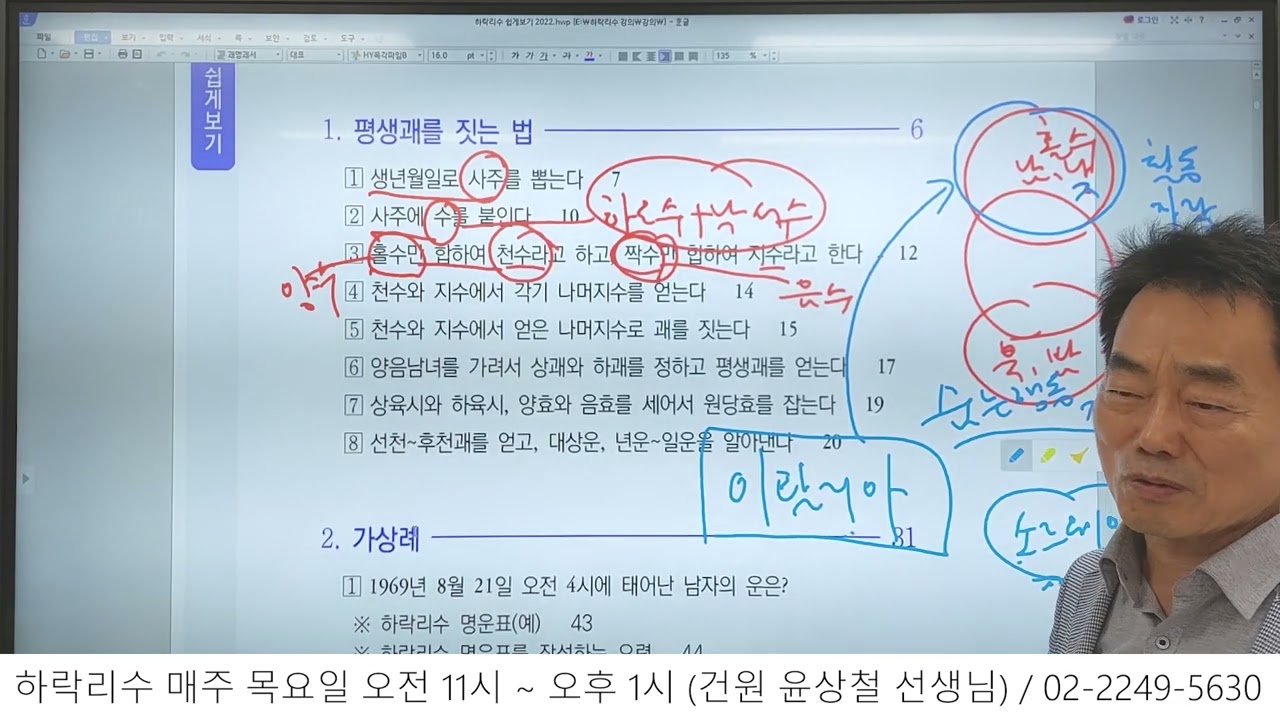 하락리수 쉽게보기 2022.hwp [E:₩하락리수 강의₩강의₩] - 훈글
로그인
파일 편집 보기 입력 서식 쪽 보안 검토 도구
과명과서 대표 HY목각파임B 16.0 pt 가 가 가 가 가 135 %
쉽게보기
1. 평생괘를 짓는 법 6
1 생년월일로 사주를 뽑는다 7
2 사주에 수를 붙인다 10
하도수+낙서수
3 홀수만 합하여 천수라고 하고, 짝수만 합하여 지수라고 한다 12
양수
음수
4 천수와 지수에서 각기 나머지수를 얻는다 14
5 천수와 지수에서 얻은 나머지수로 괘를 짓는다 15
6 양음남녀를 가려서 상괘와 하괘를 정하고 평생괘를 얻는다 17
7 상육시와 하육시, 양효와 음효를 세어서 원당효를 잡는다 19
8 선천~후천괘를 얻고, 대상운, 년운~일운을 알아낸다 20
이탈리아
2. 가상례 31
1 1969년 8월 21일 오전 4시에 태어난 남자의 운은?
※ 하락리수 명운표(예) 43
※ 하락리수 명운표를 작성하는 요령 44
하락리수 매주 목요일 오전 11시 ~ 오후 1시 (건원 윤상철 선생님) / 02-2249-5630